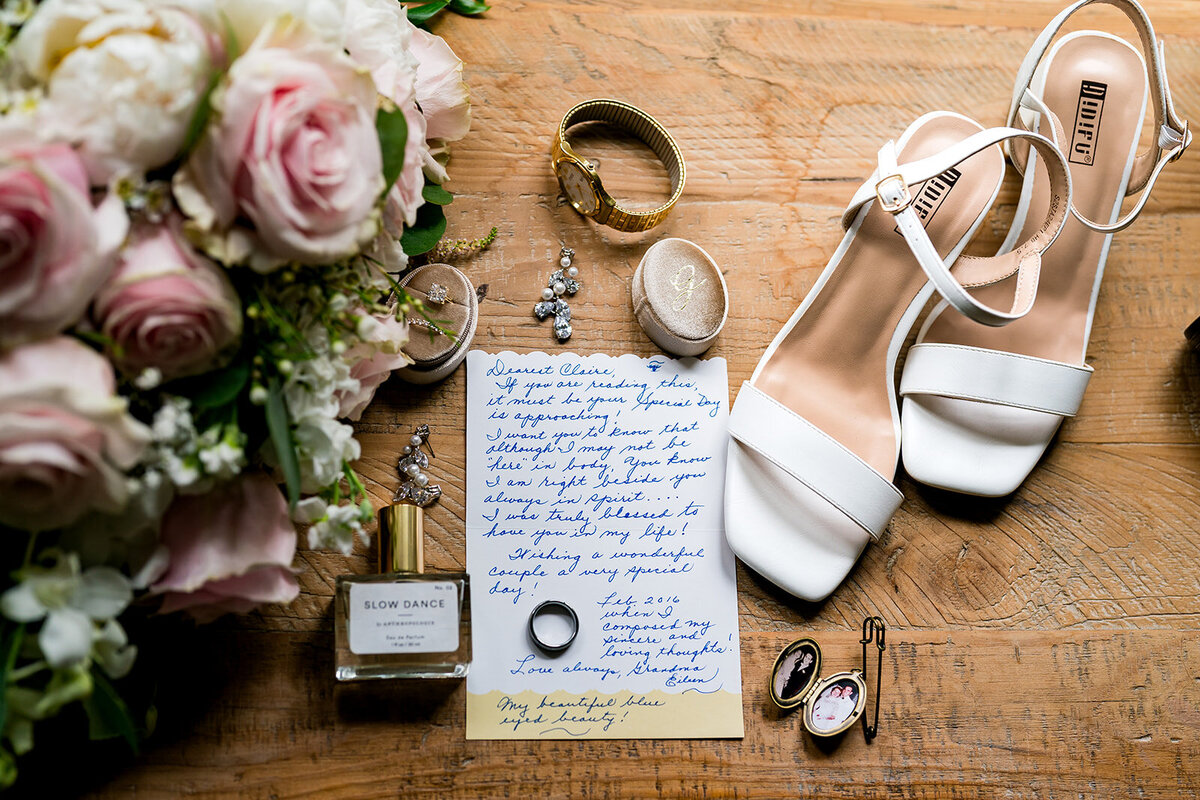 g
Dearest Claire,
If you are reading this,
it must be your Special Day
is approaching!
I want you to know that
although I may not be
"here" in body, You know
I am right beside you
always in spirit....
I was truly blessed to
have you in my life!
Wishing a wonderful
couple a very special
day!
Feb 2016
when I
composed my
sincere and
loving thoughts!
Love always, Grandma
Eileen
My beautiful blue
eyed beauty!
No. 02
SLOW DANCE
by ANTHROPOLOGIE
Eau de Parfum
1 fl oz / 30 ml